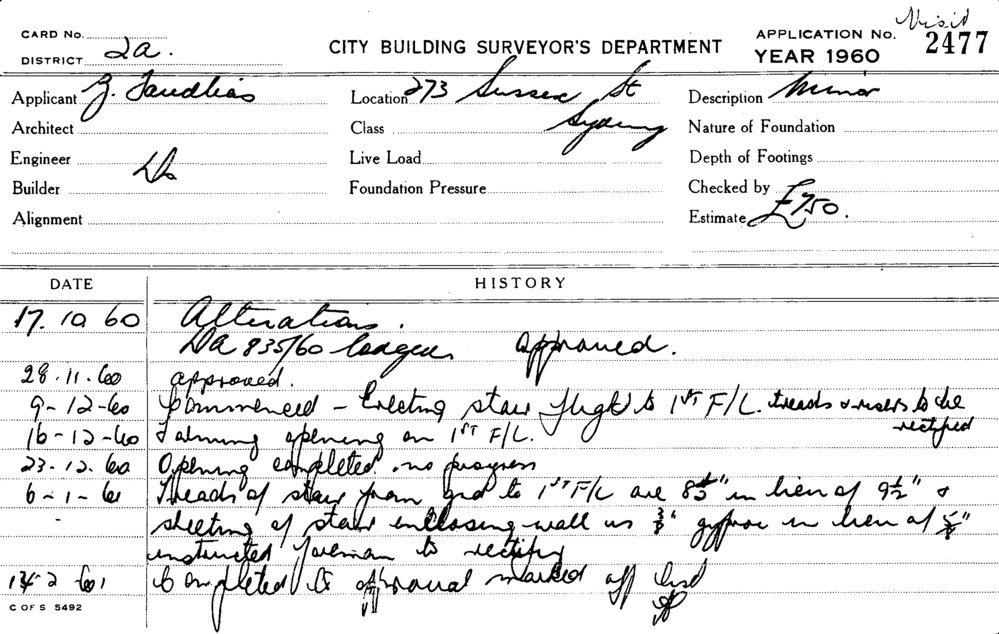 Visit
CARD No.
APPLICATION No. 2477
DISTRICT 2a.
CITY BUILDING SURVEYOR'S DEPARTMENT
YEAR 1960
Applicant
Location 273 Sussex St
Description Minor
Architect
Class Sydney
Nature of Foundation
Engineer Do
Live Load
Depth of Footings
Builder
Foundation Pressure
Checked by
Alignment
Estimate £750.
DATE HISTORY
17. 10 60 Alterations.
Da 835/60 lodged approved.
28.11.60 approved.
9-12-60 Commenced - Erecting stair flight to 1ST F/L. treads & risers to be
rectified
16-12-60 opening on 1ST F/L.
23.12.60 Opening completed no progress
6-1-61 Treads of stair from grd to 1ST F/L are 8½" in lieu of 9½" &
sheeting of stair enclosing wall is ⅜" gyproc in lieu of ⅝"
instructed foreman to rectify
2 61 Completed to approval marked off list
C OF S 5492